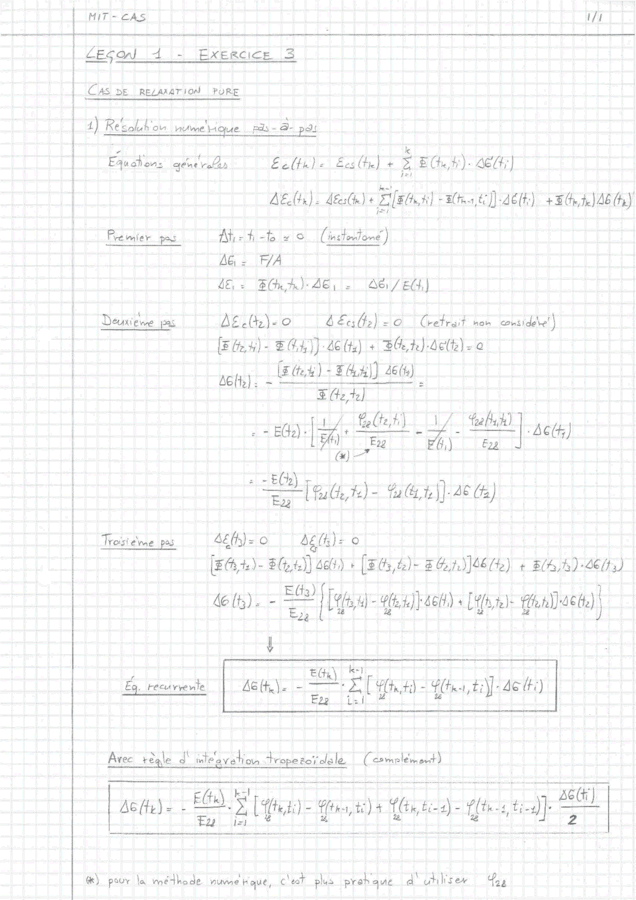 MIT-CAS 1/1
LEÇON 1 - EXERCICE 3
CAS DE RELAXATION PURE
1) Résolution numérique pas-à-pas
Équations générales εc(tk) = εcs(tk) + Σ_{i=1}^{k} Φ(tk,ti)·Δσ(ti)
Δεc(tk) = Δεcs(tk) + Σ_{i=1}^{k-1} [Φ(tk,ti) - Φ(tk-1,ti)]·Δσ(ti) + Φ(tk,tk)Δσ(tk)
Premier pas Δt1 = t1 - t0 = 0 (instantané)
Δσ1 = F/A
Δε1 = Φ(tk,tk)·Δσ1 = Δσ1/E(t1)
Deuxième pas Δεc(t2) = 0 Δεcs(t2) = 0 (retrait non considéré)
[Φ(t2,t1) - Φ(t1,t1)]·Δσ(t1) + Φ(t2,t2)·Δσ(t2) = 0
Δσ(t2) = - [Φ(t2,t1) - Φ(t1,t1)] Δσ(t1) / Φ(t2,t2) =
= - E(t2)·[1/E(t1) + φ28(t2,t1)/E28 - 1/E(t1) - φ28(t1,t1)/E28]·Δσ(t1)
(*)
= -E(t2)/E28 [φ28(t2,t1) - φ28(t1,t1)]·Δσ(t1)
Troisième pas Δεc(t3) = 0 Δεcs(t3) = 0
[Φ(t3,t1) - Φ(t2,t1)] Δσ(t1) + [Φ(t3,t2) - Φ(t2,t2)] Δσ(t2) + Φ(t3,t3)·Δσ(t3)
Δσ(t3) = - E(t3)/E28 {[φ28(t3,t1) - φ28(t2,t1)]·Δσ(t1) + [φ28(t3,t2) - φ28(t2,t2)]·Δσ(t2)}
⇓
Éq. recurrente Δσ(tk) = - E(tk)/E28 · Σ_{i=1}^{k-1} [φ28(tk,ti) - φ28(tk-1,ti)]·Δσ(ti)
Avec règle d'intégration trapezoïdale (complément)
Δσ(tk) = - E(tk)/E28 · Σ_{i=1}^{k-1} [φ28(tk,ti) - φ28(tk-1,ti) + φ28(tk,ti-1) - φ28(tk-1,ti-1)]· Δσ(ti)/2
(*) pour la méthode numérique, c'est plus pratique d'utiliser φ28